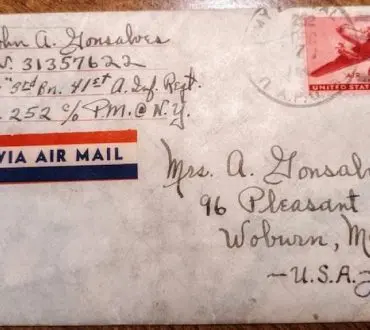 ohn A. Gonsalves
N. 31357622
" 3rd Bn. 41st A. Inf. Regt.
. 252 c/o P.M. @ N.Y.
VIA AIR MAIL
U.S. A.P.O.
AIR
UNITED STATES
Mrs. A. Gonsalve
96 Pleasant
Woburn, M
— U.S.A.